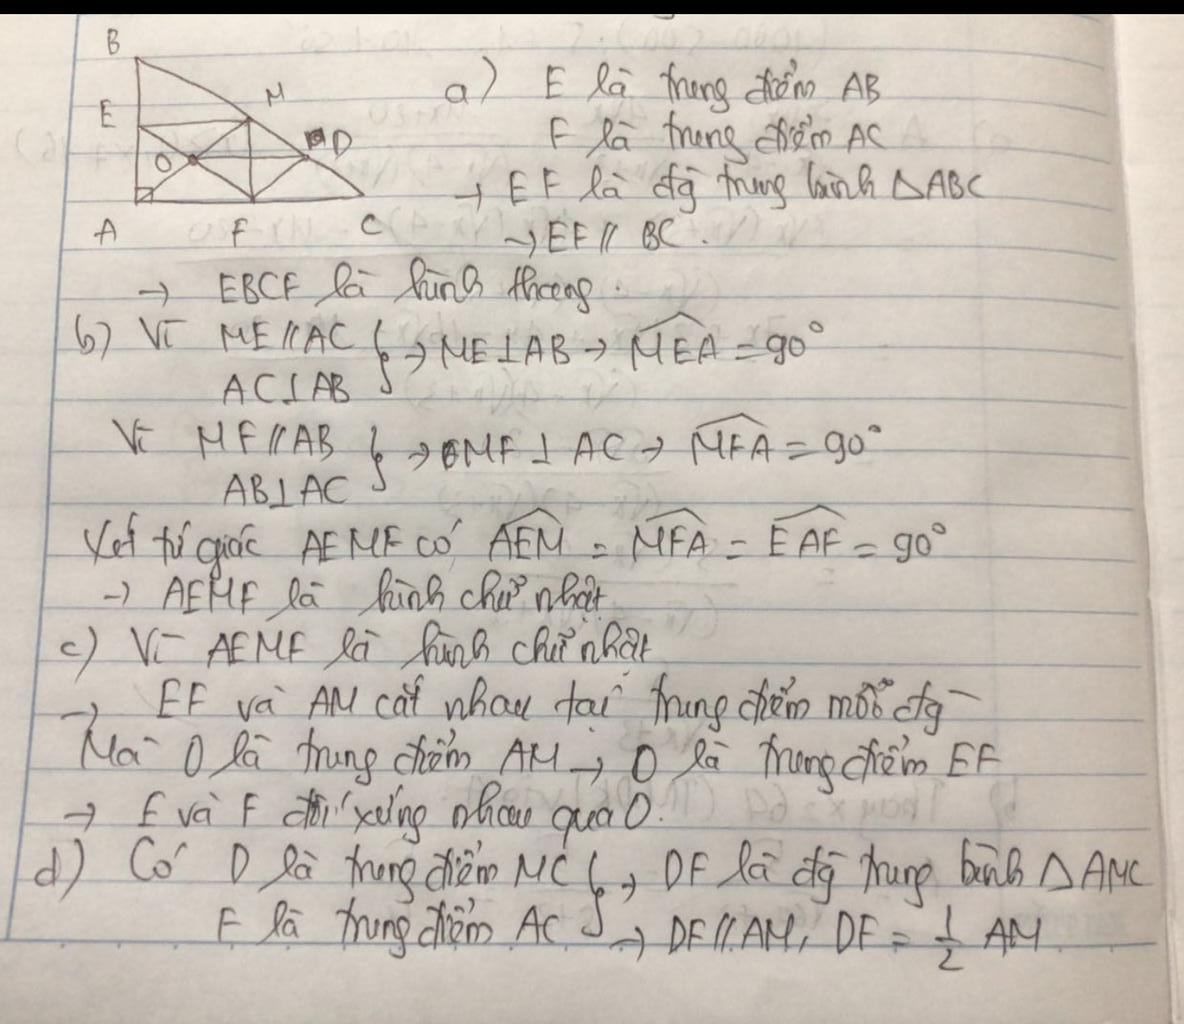 B
E
M
D
O
A F C
a) E là trung điểm AB
F là trung điểm AC
→ EF là đg trung bình ΔABC
→ EF // BC.
→ EBCF là hình thang.
b) Vì ME // AC
AC ⊥ AB } → ME ⊥ AB → \widehat{MEA} = 90°
Vì MF // AB
AB ⊥ AC } → MF ⊥ AC → \widehat{MFA} = 90°
Xét tứ giác AEMF có \widehat{AEM} = \widehat{MFA} = \widehat{EAF} = 90°
→ AEMF là hình chữ nhật
c) Vì AEMF là hình chữ nhật
→ EF và AM cắt nhau tại trung điểm mỗi đg
Mà O là trung điểm AM → O là trung điểm EF
→ E và F đối xứng nhau qua O.
d) Có D là trung điểm MC } → DF là đg trung bình ΔAMC
F là trung điểm AC → DF // AM, DF = \frac{1}{2} AM